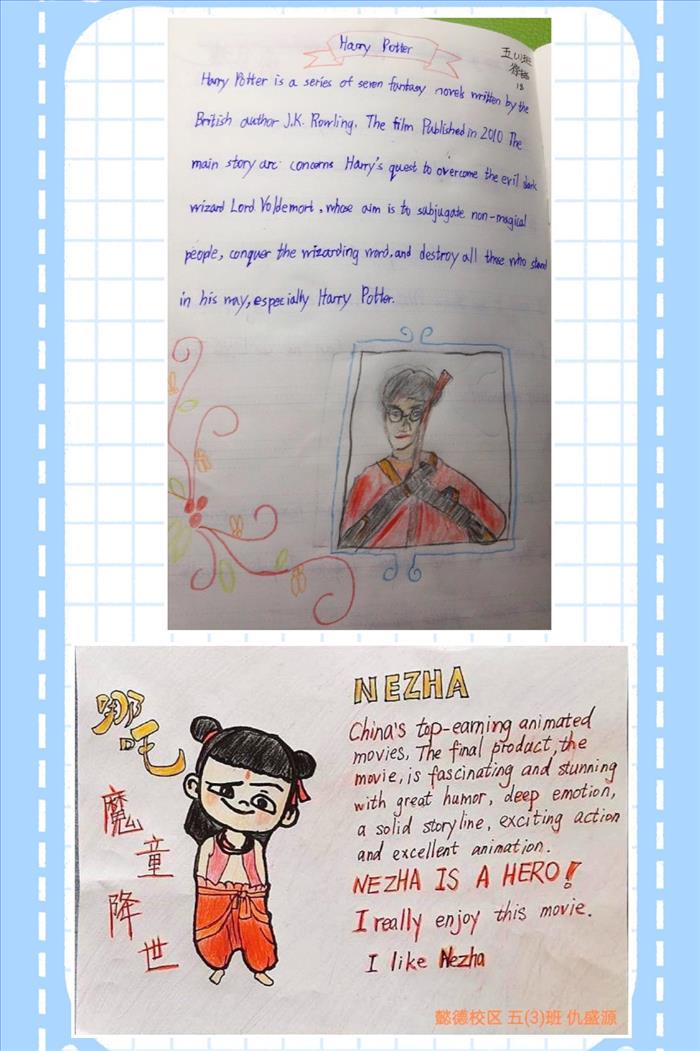 Harry Potter
五(1)班
18
Harry Potter is a series of seven fantasy novels written by the
British author J.K. Rowling. The film Published in 2010 The
main story arc concerns Harry's quest to overcome the evil dark
wizard Lord Voldemort, whose aim is to subjugate non-magical
people, conquer the wizarding word, and destroy all those who stand
in his way, especially Harry Potter.
哪吒
魔童降世
NEZHA
China's top-earning animated
movies, The final product, the
movie, is fascinating and stunning
with great humor, deep emotion,
a solid storyline, exciting action
and excellent animation.
NEZHA IS A HERO!
I really enjoy this movie.
I like Nezha
懿德校区 五(3)班 仇盛源